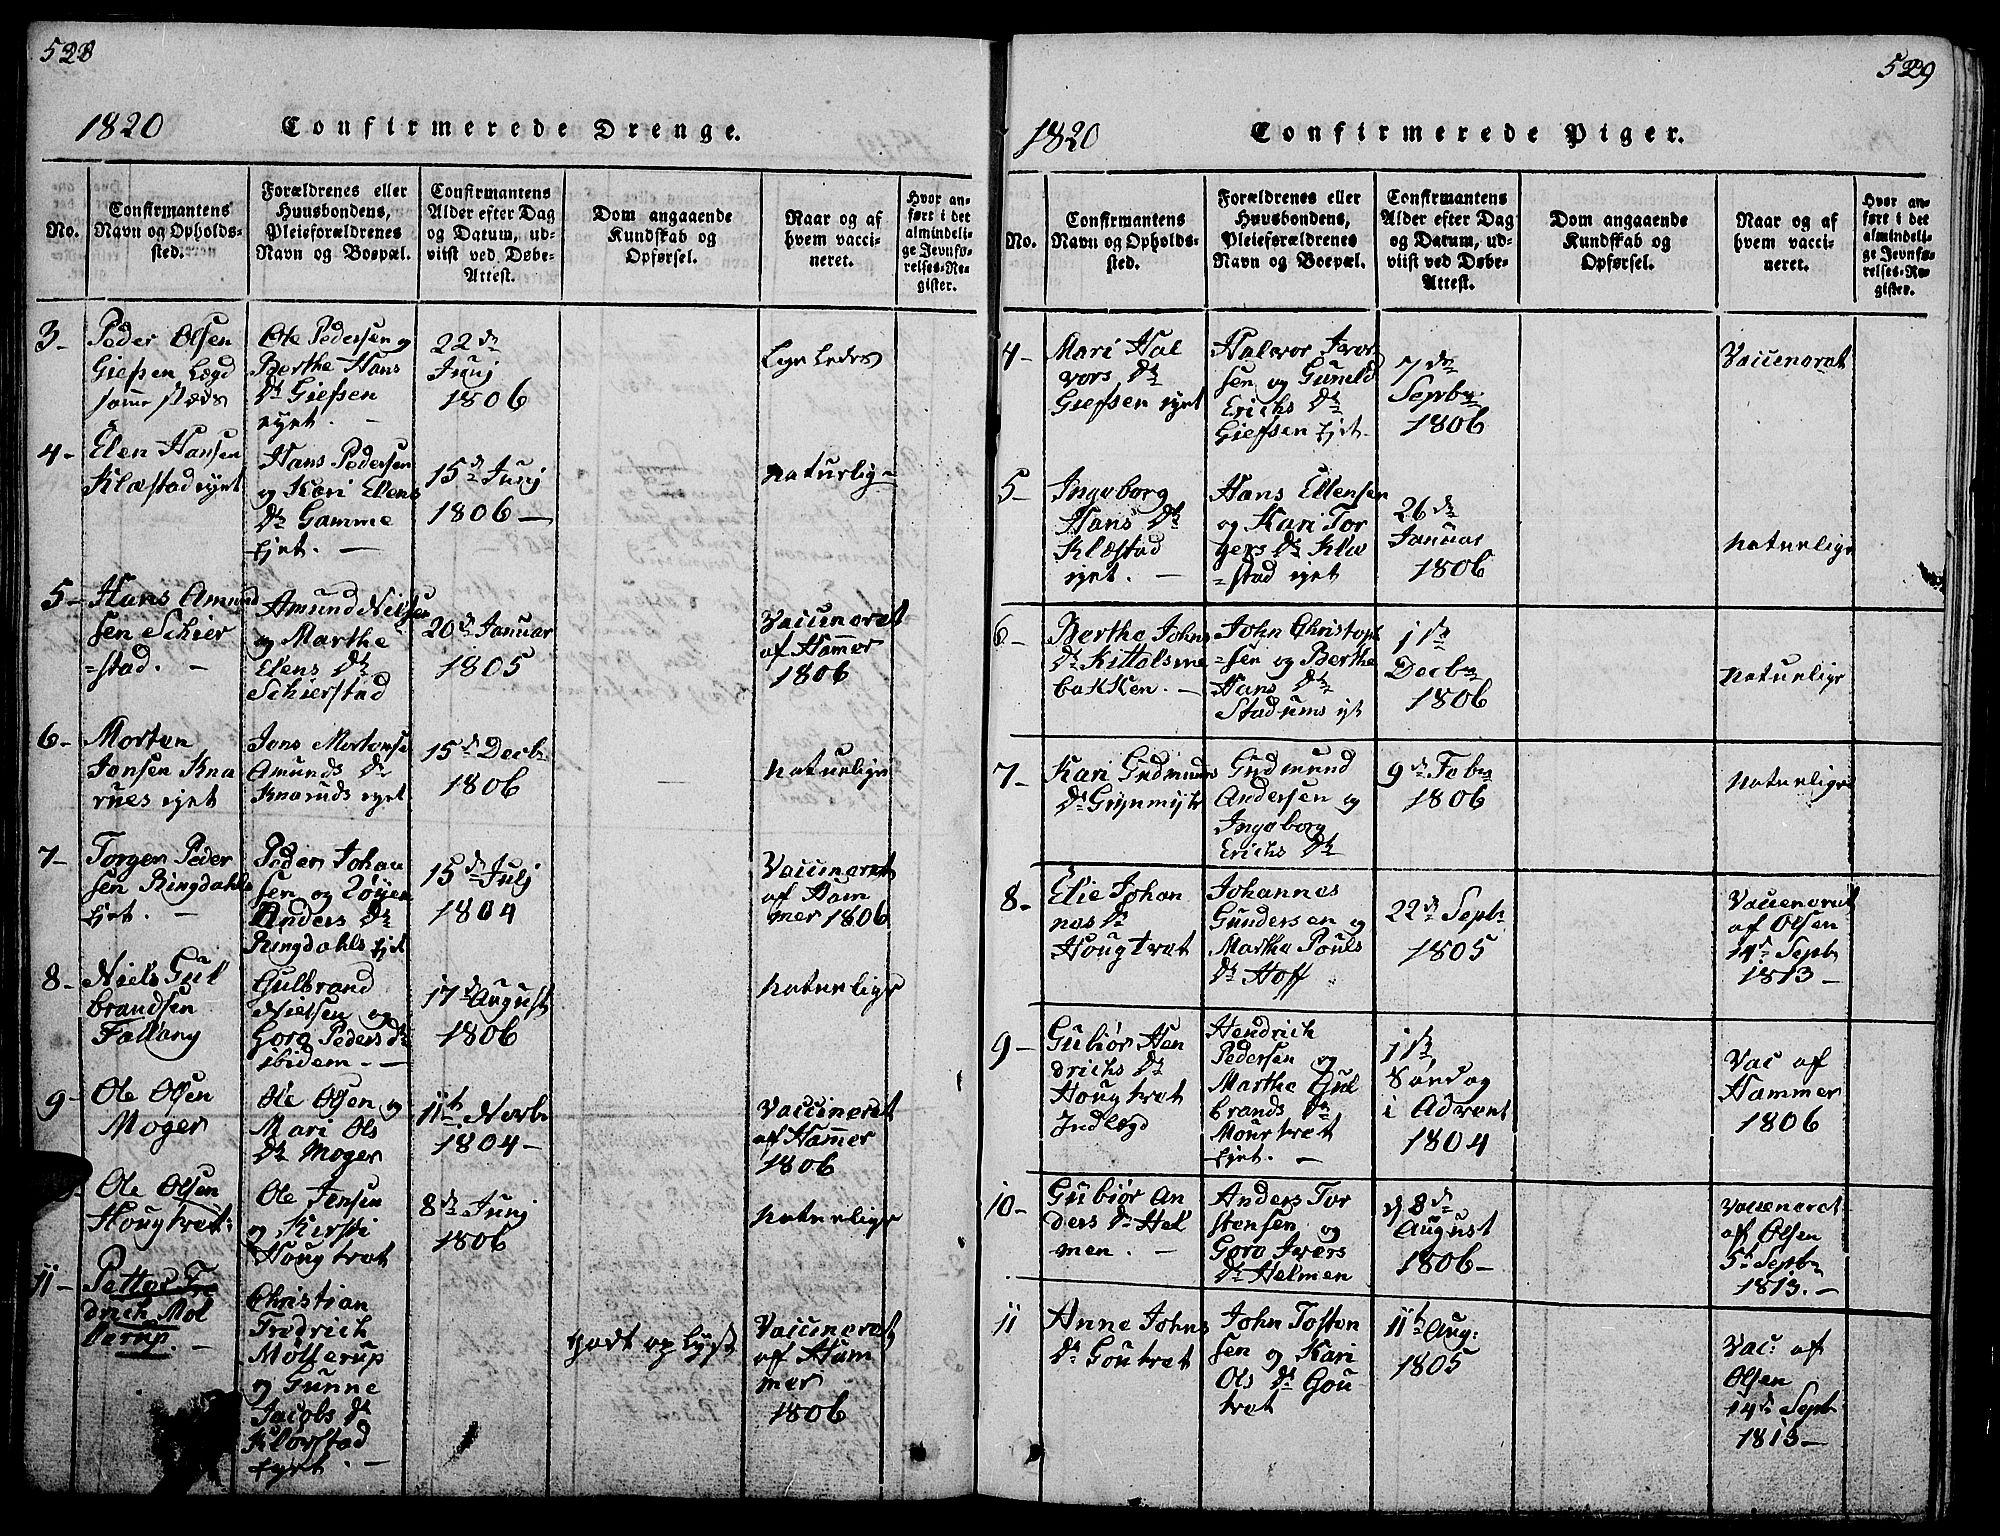 528
1820 Confirmerede Drenge.
No.
Confirmantens
Navn og Opholds-
sted.
Forældrenes eller
Huusbondens,
Pleieforældrenes
Navn og Boepæl.
Confirmantens
Alder efter Dag
og Datum, ud-
viist ved Døbe-
Attest.
Dom angaaende
Kundskab og
Opførsel.
Naar og af
hvem vacci-
neret.
Hvor an-
ført i det
almindeli-
ge Jevnfø-
relses-Re-
gister.
3-
Peder Olsen
Giefsen Lægd
samme stæds
Ole Pedersen og
Berthe Hans
Dr Giefsen
eyet. -
22de
Junj
1806
4-
Elen Hansen
Klæstad eyet
Hans Pedersen
og Kari Elens
Dr Gamme
Ejet. -
15de Junj
1806 -
naturlig-
5-
Hans Amund
sen Schier
=stad. -
Amund Nielsen
og Marthe
Elens Dr
Schierstad
20de Januar
1805
Vaccineret
af Hammer
1806
6-
Morten
Jonsen Kna
rues ejet
Jens Mortense
Amunds Dr
Knaruds eyet
15de Decbr
1806
naturlige
7-
Torger Peder
sen Ringdahls
Ejet. -
Peder Johan
sen og
Anders Dr
Ringdahls Ejet
15de Julj
1804
Vaccineret
af Ham
mer 1806
8-
Niels Gul
brandsen
Fallang
Gulbrand
Nielsen og
Goro Peders Dr
ibidem. -
17de August
1806
naturlige
9-
Ole Olsen
Moger
Ole Olsen og
Mari Ols
Dr Moger
11te Novbr
1804 -
Vaccineret
af Hammer
1806
Ole Olsen
Hougtvet:
Ole Jensen
og Kirsti
Hougtvet
8de Junj
1806
naturlige
11-
Petter Fre
drich Mol
lerup. -
Christian
Fredrich
Møllerup
og Gunne
Jacobs Dr
Klørstad
Eyet. -
godt oplyst
Vaccineret
af Ham
mer
1806
529
1820 Confirmerede Piger.
No.
Confirmantens
Navn og Opholds-
sted.
Forældrenes eller
Huusbondens,
Pleieforældrenes
Navn og Boepæl.
Confirmantens
Alder efter Dag
og Datum, ud-
viist ved Døbe-
Attest.
Dom angaaende
Kundskab og
Opførsel.
Naar og af
hvem vacci-
neret.
Hvor an-
ført i det
almindeli-
ge Jevnfø-
relses-Re-
gister.
4-
Mari Hal
vors Dr
Giefsen eyet
Halvor Iver
sen og Gunild
Erichs Dr
Giefsen Ejet.
7de
Sepbr
1806
Vaccenerat
5-
Ingeborg
Hans Dr
Klæstad
eyet. -
Hans Ellensen
og Kari Tor
gers Dr Klæ
=stad eyet
26de
Januar
1806
naturlige
6-
Berthe Johns
Dr Kittelsme
bakken. -
John Christoph
=sen og Berthe
Hans Dr
Stadums ejet
1ste
Decbr
1806
naturlige
7-
Kari Gudmunds
Dr Grynmyhr
Gudmund
Andersen og
Ingeborg
Erichs Dr
9de Febr
1806
naturlige
8-
Elie Johan
nes Dr
Hougtvet
Johannes
Gundersen og
Marthe Pouls
Dr Hoff
22de Septr
1805
Vaccenerat
af Olsen
14de Septr
1813 -
9-
Gubiør Hen
drichs Dr
Hougtvet
Indlægd
Hendrich
Pedersen og
Marthe Gul
brands Dr
Mourtvet
Eyet. -
1ste
Søndag
i Advent
1804
Vac af
Hammer
1806
10-
Gubiør An
ders Dr Hel
men. -
Anders Tor
stensen og
Goro Ivers
Dr Helmen
d 8de
August
1806 -
Vaccenerat
af Olsen
5te Septbr
1813. -
11
Anne Johns
Dr Goutvet
John Tosten
sen og Kari
Ols Dr Gou
tvet
11te Aug:
1805
Vac: af
Olsen
14de Septr
1813 -